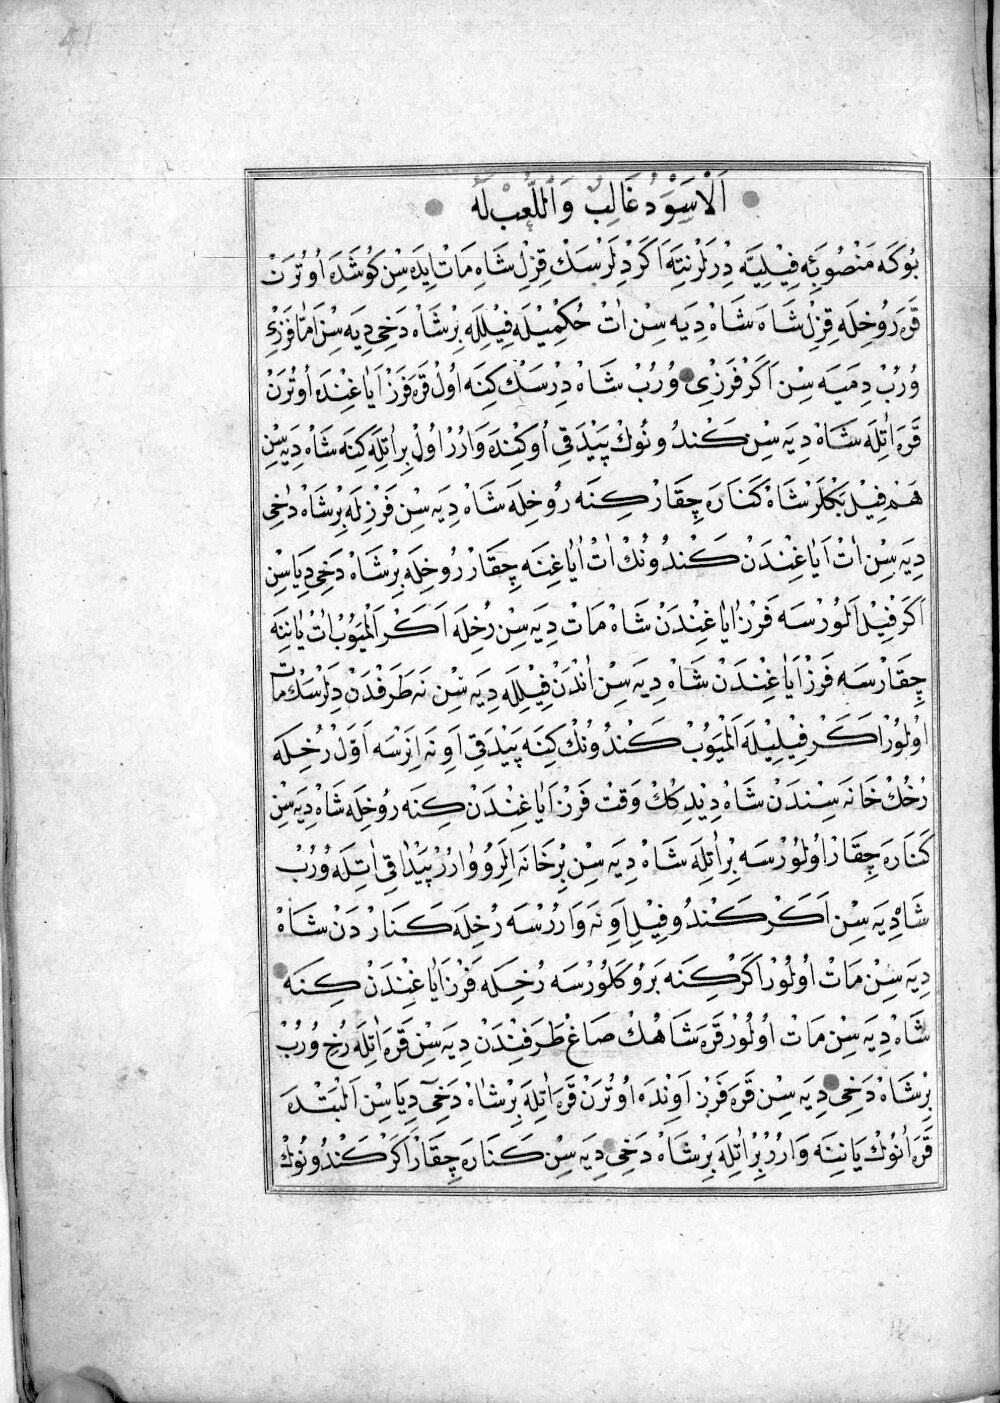 41
اَلْاَسْوَدُ غَالِبٌ وَاللَّعِبُ لَهُ
بُوكَه مَنْصُوبَهٔ فِيلِيَّه دِرلَرْ نِتَه اَكَرْ دِلَرْسَكْ قِزِلْ شَاهِ مَاتْ اِيدَه سِنْ كُوشَدَه اُوتُرَنْ
قَرَه رُوخِلَه قِزِلْ شَاهَ شَاهْ دِيَه سِنْ اٰتْ حُكْمِيْلَه فِيْلِلَه بِرْ شَاهْ دَخِى دِيَه سِنْ اَمَّا فَرْزِى
وُرُبْ دِمَيَه سِنْ اَكَرْ فَرْزِى وُرُبْ شَاهْ دِرْسَكْ كِنَه اُولْ قَرَه فَرْزْ اَيَاغِنْدَه اُوتُرَنْ
قَرَه اٰتِلَه شَاهْ دِيَه سِنْ كَنْدُونُوكْ پَيْدَقِى اُوكِنْدَه وَارُرْ اُولْ بِرْ اٰتِلَه كِنَه شَاهْ دِيَه سِنْ
هَمْ فِيْلْ بَكْلَرْ شَاهْ كَنَارَه چِقَارْ كِنَه رُوخِلَه شَاهْ دِيَه سِنْ فَرْزِلَه بِرْ شَاهْ دَخِى
دِيَه سِنْ اٰتْ اَيَاغِنْدَنْ كَنْدُونُكْ اٰتْ اَيَاغِنَه چِقَارْ رُوخِلَه بِرْ شَاهْ دَخِى دِيَاسِنْ
اَكَرْ فِيْلْ اَلُورْسَه فَرْزْ اَيَاغِنْدَنْ شَاهْ مَاتْ دِيَه سِنْ رُخِلَه اَكَرْ اَلْمَيُوبْ اٰتْ يَانِنَه
چِقَارْسَه فَرْزْ اَيَاغِنْدَنْ شَاهْ دِيَه سِنْ اَنْدَنْ فِيْلِلَه دِيَه سِنْ نَه طَرَفْدَنْ دِلَرْسَكْ مَاتْ
اُولُورْ اَكَرْ فِيْلِيْلَه اَلْمَيُوبْ كَنْدُونُكْ كِنَه پَيْدَقِى اَوِنَه اِنَرْسَه اَوَّلْ رُخِلَه
رُخُكْ خَانَه سِنْدَنْ شَاهْ دِيْدِكُكْ وَقْتْ فَرْزْ اَيَاغِنْدَنْ كِنَه رُوخِلَه شَاهْ دِيَه سِنْ
كَنَارَه چِقَارْ اُولُورْسَه بِرْ اٰتِلَه شَاهْ دِيَه سِنْ بِرْ خَانَه اِلَرُو وَارُرْ پَيْدَاقِى اٰتِلَه وُرُبْ
شَاهْ دِيَه سِنْ اَكَرْ كَنْدُو فِيْلِ اَوِنَه وَارُرْسَه رُخِلَه كَنَارْدَنْ شَاهْ
دِيَه سِنْ مَاتْ اُولُورْ اَكَرْ كِنَه بَرُو كَلُورْسَه رُخِلَه فَرْزْ اَيَاغِنْدَنْ كِنَه
شَاهْ دِيَه سِنْ مَاتْ اُولُورْ قَرَه شَاهُكْ صَاغْ طَرَفِنْدَنْ دِيَه سِنْ قَرَه اٰتِلَه رُخِ وُرُبْ
بِرْ شَاهْ دَخِى دِيَه سِنْ قَرَه فَرْزْ اَوِنْدَه اُوتُرَنْ قَرَه اٰتِلَه بِرْ شَاهْ دَخِى دِيَاسِنْ اَلْبَتَّه
قَرَه اٰتُوكْ يَانِنَه وَارُرْ بِرْ اٰتِلَه بِرْ شَاهْ دَخِى دِيَه سِنْ كَنَارَه چِقَارْ اَكَرْ كَنْدُونُوكْ